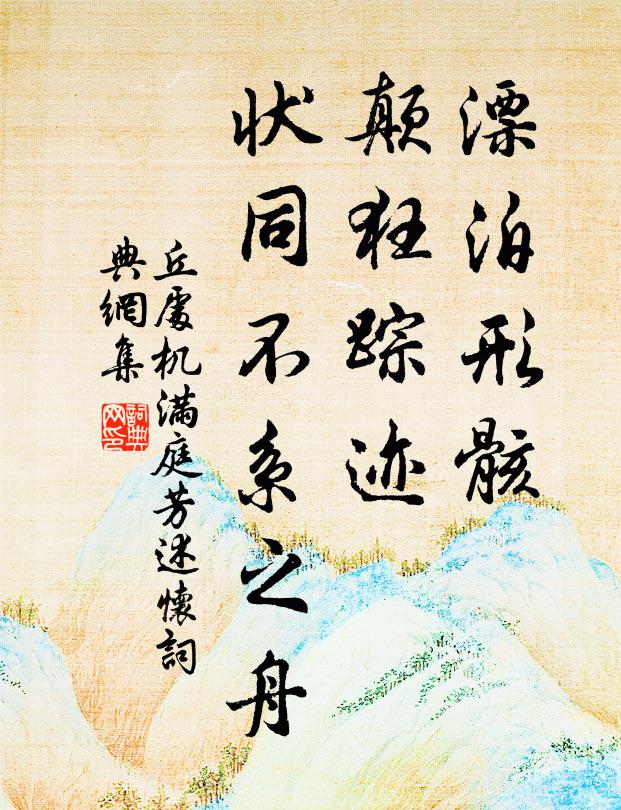 漂泊形骸
颠狂踪迹
状同不系之舟
丘處机满庭芳述懷詞
典網集
詞典网印